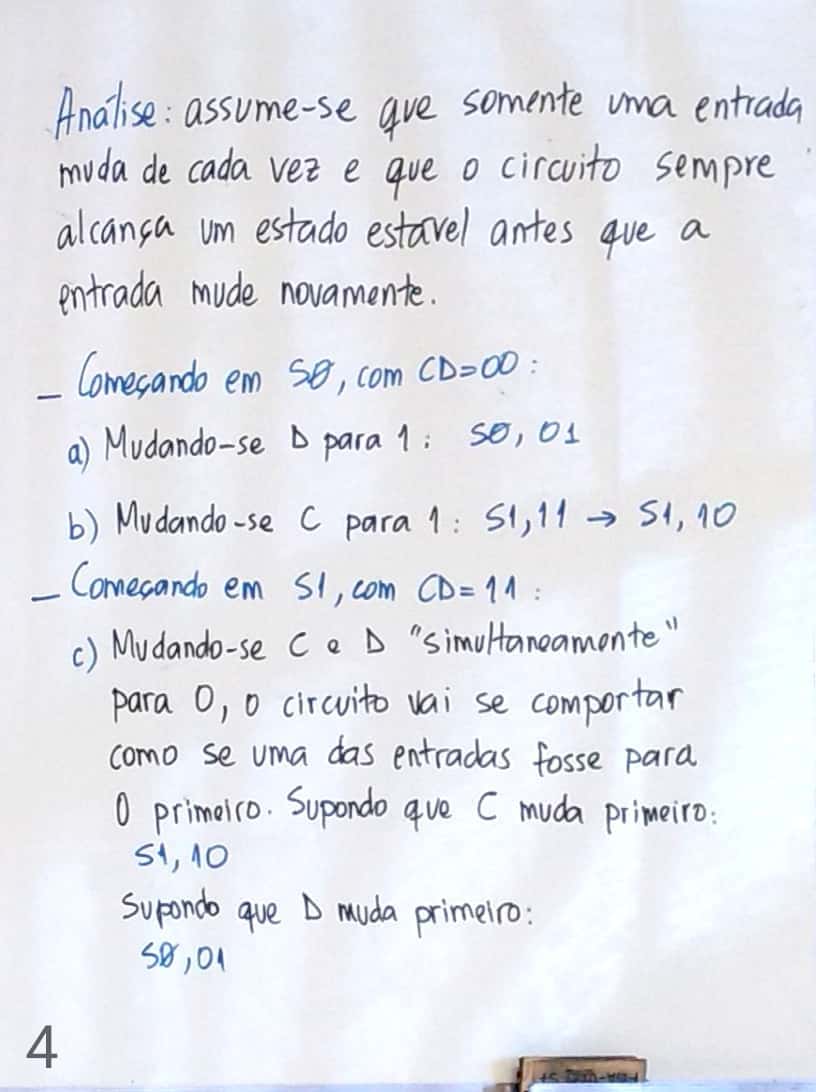 Análise: assume-se que somente uma entrada
muda de cada vez e que o circuito sempre
alcança um estado estável antes que a
entrada mude novamente.
— Começando em S0, com CD=00:
a) Mudando-se D para 1: S0, 01
b) Mudando-se C para 1: S1,11 → S1, 10
— Começando em S1, com CD=11:
c) Mudando-se C e D "simultaneamente"
para 0, o circuito vai se comportar
como se uma das entradas fosse para
0 primeiro. Supondo que C muda primeiro:
S1, 10
Supondo que D muda primeiro:
S0,01
4